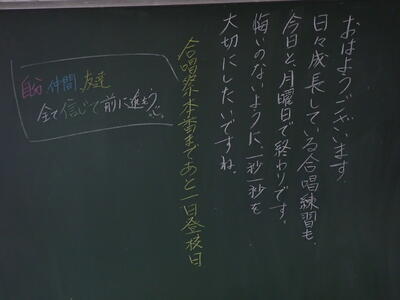 おはようございます。
日々成長している合唱練習も、
今日と、月曜日で終わりです。
悔いのないように、一秒一秒を
大切にしたいですね。
合唱祭本番まであと一日登校日
自分 仲間 友達
全て信じて前に進もう